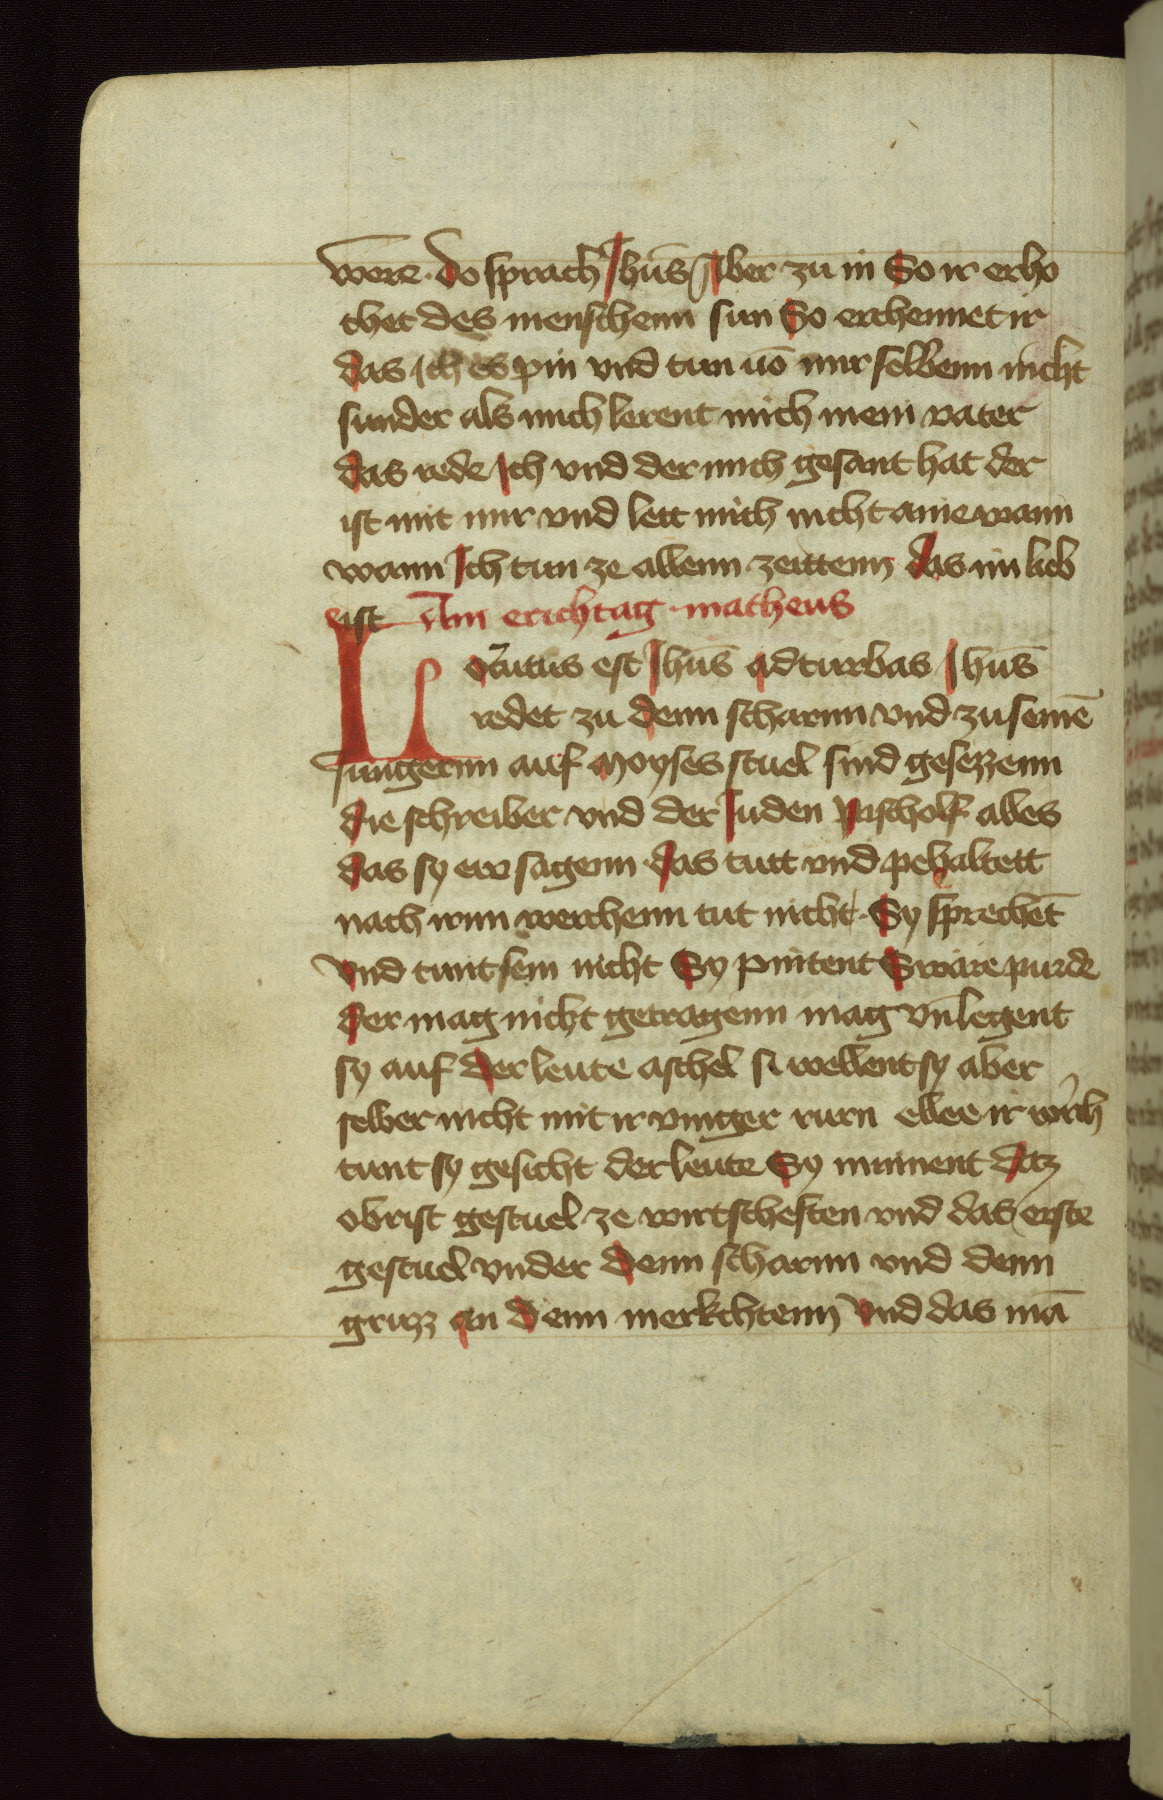 were. do sprach Jhūs Aber zu in So ir erho
chet des menschenn sun So erchennet ir
das ich es pin vnd tun vō mir selbenn nicht
sunder als mich lerent mich mein vater
das rede Ich vnd der mich gesant hat der
ist mit mir vnd lett mich nicht anie wann
wann Ich tun ze allenn zeittenn das im lieb
ist Am erichtag matheus
Locutus est Jhūs ad turbas Jhūs
redet zu denn scharnn vnd zu seinē
Jungernn auf Moyses stuel sind gesezzenn
die schreiber vnd der Juden pischolf alles
das sy ew sagenn das tutt vnd pehaltett
nach irnn werchenn tut nicht Sy sprechēt
vnd tunt sein nicht Sy pintent Swäre purde
der mag nicht getragenn mag vn̄ legent
sy auf der leute aschel si wellent sy aber
selber nicht mit ir vinger rurn ellee ir wrch
tunt sy gesicht der leute Sy minnent datz
obrist gestuel ze wirtscheften vnd das erste
gestuel vnder denn scharnn vnd denn
gruzz an denn merkchtenn vnd das mā